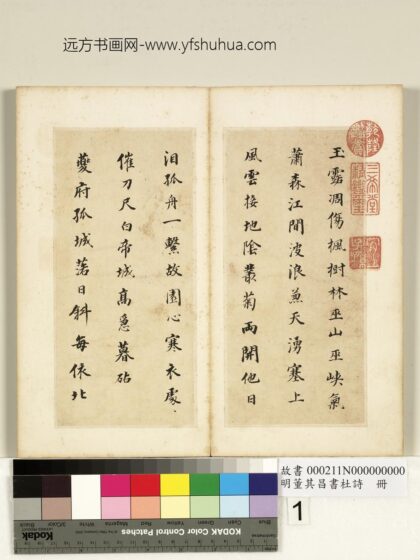 远方书画网-www.yfshuhua.com
玉露凋傷楓樹林巫山巫峡氣
蕭森江間波浪兼天湧塞上
風雲接地陰叢菊兩開他日
泪孤舟一繫故園心寒衣處、
催刀尺白帝城髙急暮砧
夔府孤城落日斜每依北
乾隆鑑賞
三希堂精鑑璽
宜子孫
故書 000211N000000000
明董其昌書杜詩 冊
1
Kodak
KODAK Color Control Patches
Blue
Cyan
Green
Yellow
Red
Magenta
White
3/Color
Black